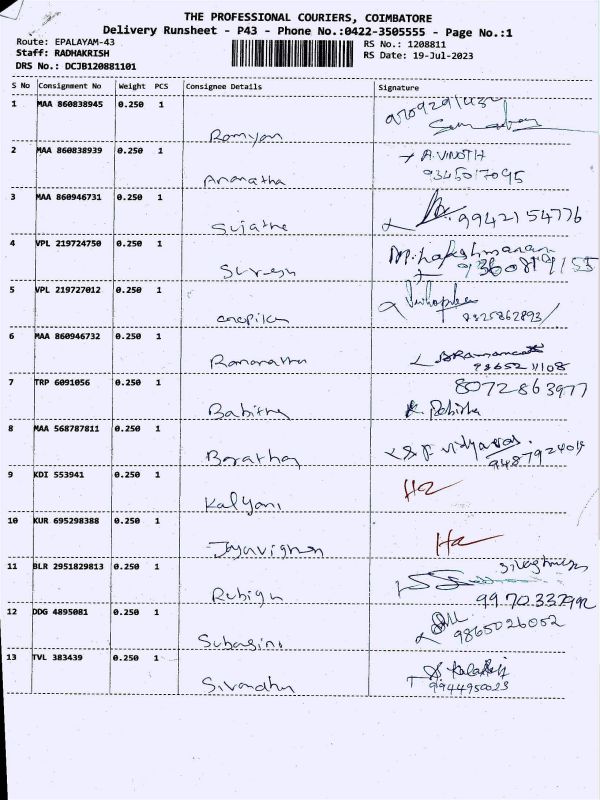 THE PROFESSIONAL COURIERS, COIMBATORE
Delivery Runsheet - P43 - Phone No.:0422-3505555 - Page No.:1
Route: EPALAYAM-43
Staff: RADHAKRISH
DRS No.: DCJB120881101
RS No.: 1208811
RS Date: 19-Jul-2023
S No Consignment No Weight PCS Consignee Details Signature
1 MAA 860838945 0.250 1
Ramyan
2 MAA 860838939 0.250 1 A.VINOTH
Anantha 9345017095
3 MAA 860946731 0.250 1
Sujatha 9942154776
4 VPL 219724750 0.250 1 M.Lakshmanan
Suresh
5 VPL 219727012 0.250 1
8925862893
6 MAA 860946732 0.250 1
7 TRP 6091056 0.250 1 8072863977
Babitha K. Babitha
8 MAA 568787811 0.250 1
9487924019
9 KDI 553941 0.250 1
Kalyani
10 KUR 695298388 0.250 1
11 BLR 2951829813 0.250 1
9970337992
12 DDG 4895081 0.250 1
Subasini 9865026052
13 TVL 383439 0.250 1
9944950023